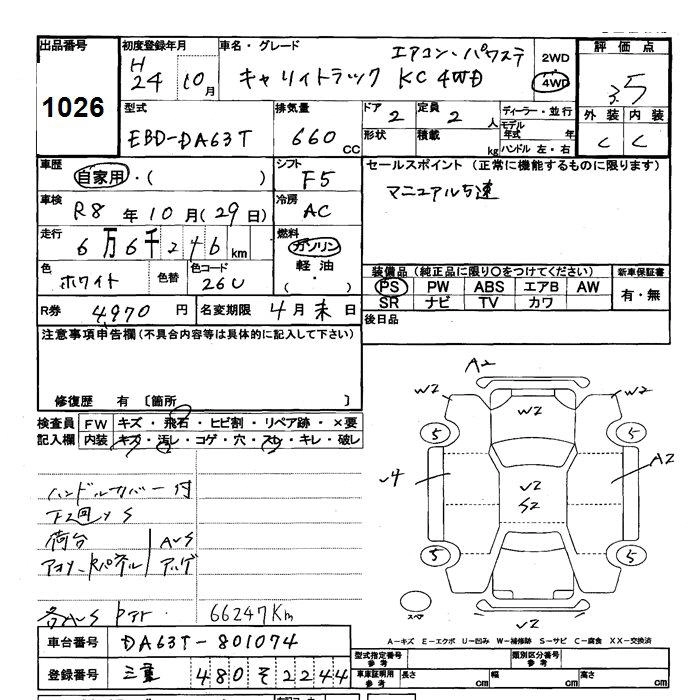 出品番号
1026
初度登録年月
H
24 10月
車名・グレード
エアコン・パワステ
キャリイトラック KC 4WD
2WD
4WD
評価点
3.5
外装 内装
C C
型式
EBD-DA63T
排気量
660 CC
ドア 2
形状
定員 2 人
積載 kg
ディーラー・並行
モデル年式 年
ハンドル 左・右
車歴
自家用・( )
シフト
F5
セールスポイント (正常に機能するものに限ります)
マニュアル5速
車検
R8 年 10 月 (29 日)
冷房
AC
走行
6万6千246 km
燃料
ガソリン
軽油
( ・ )
色
ホワイト
色替
色コード
26U
装備品 (純正品に限り○をつけてください)
PS PW ABS エアB AW
SR ナビ TV カワ
新車保証書
有・無
R券 4,970 円
名変期限 4月末日
後日品
注意事項申告欄(不具合内容等は具体的に記入して下さい)
修復歴 有 〔箇所 〕
検査員記入欄
FW キズ・飛石・ヒビ割・リペア跡・×要
内装 キズ・汚レ・コゲ・穴・スレ・キレ・破レ
ハンドルカバー付
荷台
66247Km
A2
W2 W2
W2
5 5
V4 A2
V2
S2
5 5
スペア
V2
A-キズ E-エクボ U-凹み W-補修跡 S-サビ C-腐食 XX-交換済
車台番号 DA63T-801074
登録番号 三重 480 そ 2244
型式指定番号 参考
類別区分番号 参考
車庫証明用 参考
長さ cm 幅 cm 高さ cm